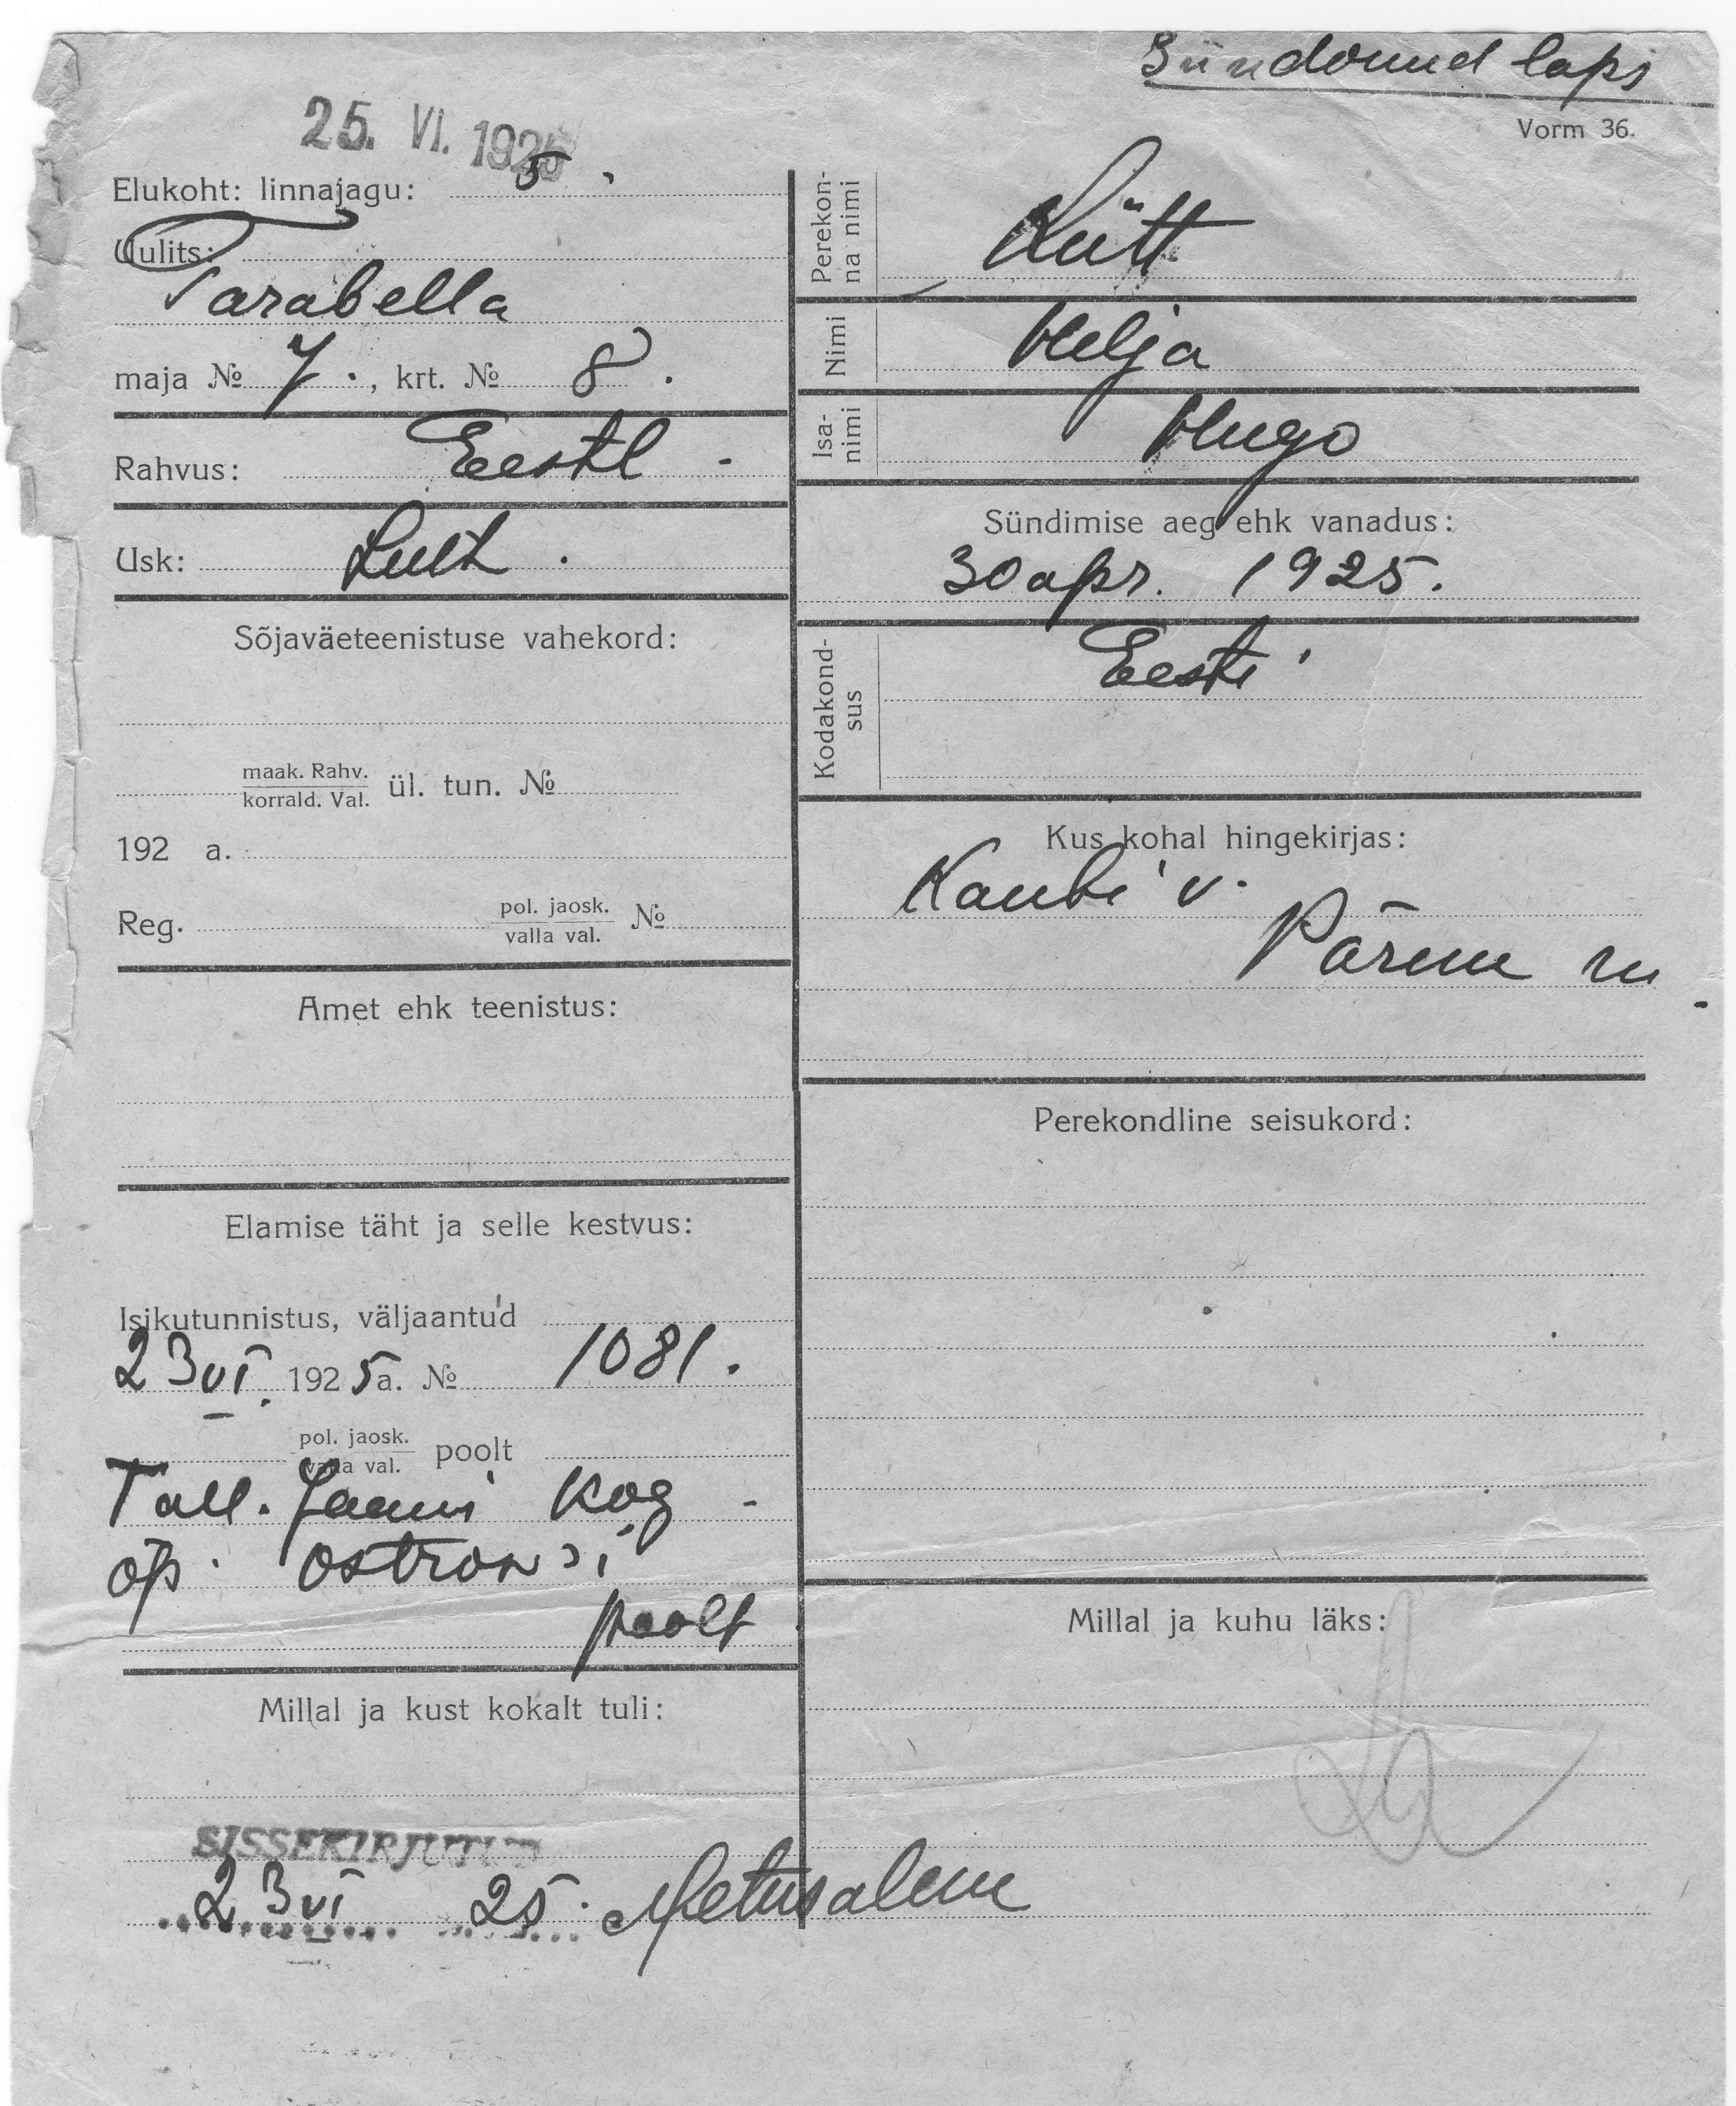 Sündinud laps
Vorm 36.
25. VI. 1925
Elukoht: linnajagu: 5
Uulits:
Parabella
maja № 7., krt. № 8.
Rahvus: Eestl -
Usk: Luth.
Sõjaväeteenistuse vahekord:
maak. Rahv.
korrald. Val. ül. tun. №
192 a.
Reg. pol. jaosk.
valla val. №
Amet ehk teenistus:
Elamise täht ja selle kestvus:
Isikutunnistus, väljaantud
23 VI. 1925 a. № 1081.
pol. jaosk.
valla val. poolt
Tall. Jaani kog -
õp.
poolt
Millal ja kust kokalt tuli:
SISSEKIRJUTUD
23 VI 25. Metusalem
Perekonna nimi
Kütt
Nimi
Helja
Isanimi
Hugo
Sündimise aeg ehk vanadus:
30 apr. 1925.
Kodakondsus
Eesti
Kus kohal hingekirjas:
Kaubi v.
Pärnu m.
Perekondline seisukord:
Millal ja kuhu läks: